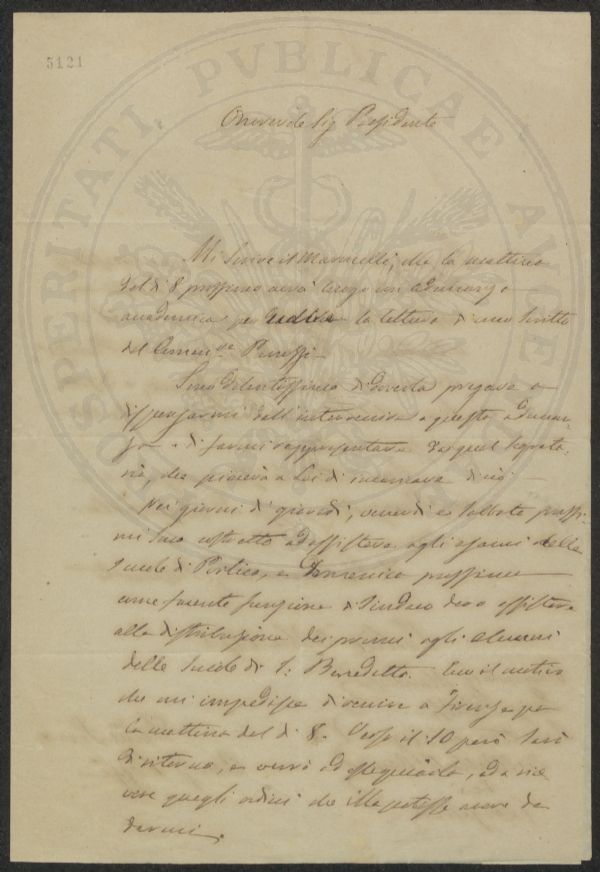 5121
PROSPERITATI PVBLICAE AVGENDAE
Onorevole Sig Presidente
Mi scrive il Marucelli, che la mattina
del dì 8 prossimo avrà luogo un adunanza
accademica per udire la lettura di uno scritto
del Commen.re Peruzzi
Sono dolentissimo di doverla pregare a
dispensarmi dall'intervenire a questa adunan-
za e di farmi rappresentare da quel Segreta-
rio, che piacerà a Lei di incaricare di ciò
Nei giorni di giovedì, venerdì e sabbato prossi-
mi sono costretto ad assistere agli esami delle
Scuole di Portico, e Domenica prossima
come facente funzione di Sindaco devo assistere
alla distribuzione dei premi agli alunni
delle Scuole di S: Benedetto. Ecco il motivo
che mi impedisce di venire a Firenze per
la mattina del dì 8. Verso il 10 però sarò
di ritorno, e verrò ad ossequiarla, ed a rice
vere quegli ordini che Ella potesse avere da
darmi.